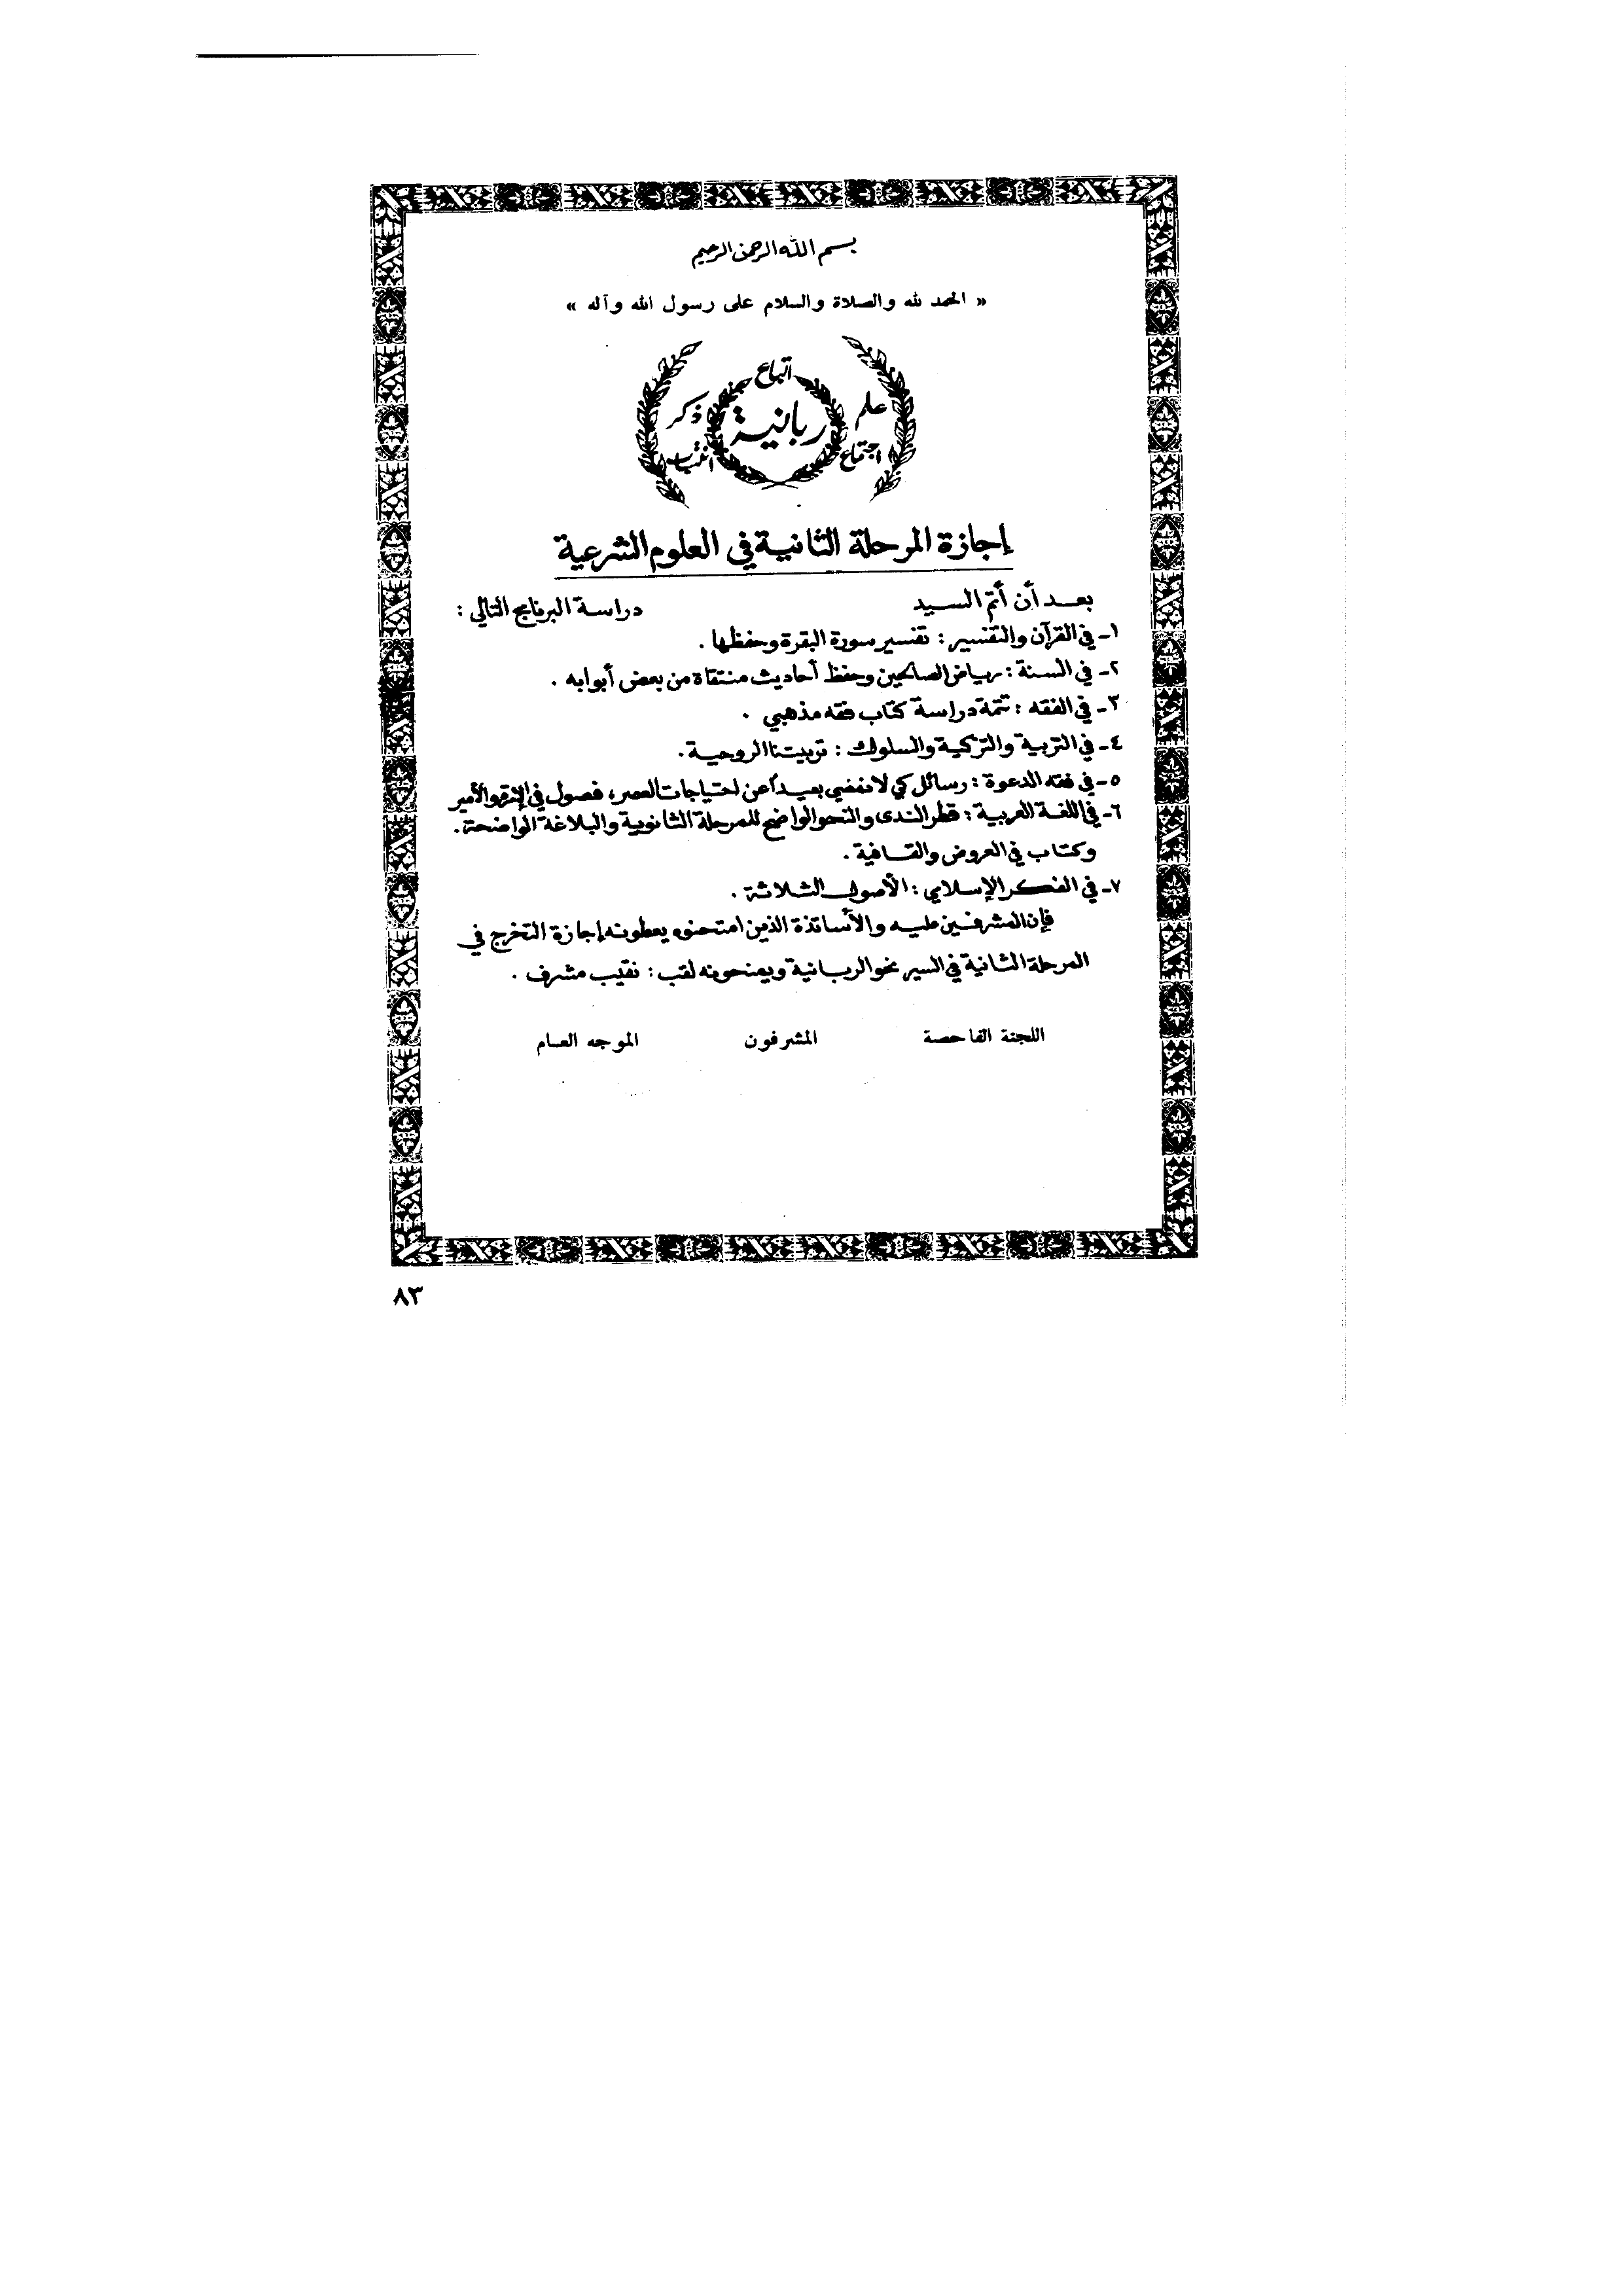 بسم الله الرحمن الرحيم
« الحمد لله والصلاة والسلام على رسول الله وآله »
اتباع
علم
ذكر
ربانية
اجتماع
إجازة المرحلة الثانية في العلوم الشرعية
بعد أن أتم السيد دراسة البرنامج التالي :
١- في القرآن والتفسير : تفسير سورة البقرة وحفظها .
٢- في السنة : رياض الصالحين وحفظ أحاديث منتقاة من بعض أبوابه .
٣- في الفقه : تتمة دراسة كتاب فقه مذهبي .
٤- في التربية والتزكية والسلوك : تربيتنا الروحية .
٥- في فقه الدعوة : رسائل كي لا نمضي بعيداً عن احتياجات العصر ، فصول في الإمرة والأمير
٦- في اللغة العربية : قطر الندى والنحو الواضح للمرحلة الثانوية والبلاغة الواضحة .
وكتاب في العروض والقافية .
٧- في الفكر الإسلامي : الأصول الثلاثة .
فإن المشرفين عليه والأساتذة الذين امتحنوه يعطونه إجازة التخرج في
المرحلة الثانية في السير نحو الربانية ويمنحونه لقب : نقيب مشرف .
اللجنة الفاحصة المشرفون الموجه العام
٨٣